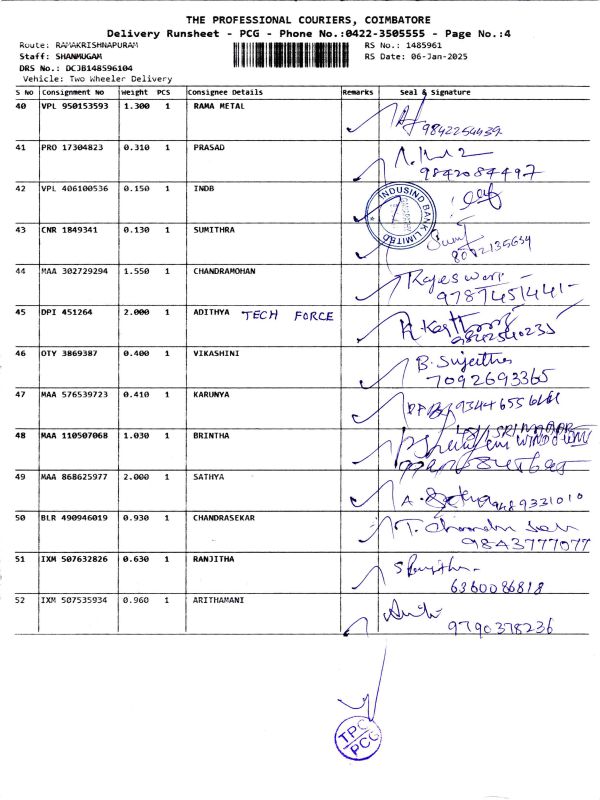 THE PROFESSIONAL COURIERS, COIMBATORE
Delivery Runsheet - PCG - Phone No.:0422-3505555 - Page No.:4
Route: RAMAKRISHNAPURAM RS No.: 1485961
Staff: SHANMUGAM RS Date: 06-Jan-2025
DRS No.: DCJB148596104
Vehicle: Two Wheeler Delivery
S NO Consignment No Weight PCS Consignee Details Remarks Seal & Signature
40 VPL 950153593 1.300 1 RAMA METAL
9842254439
41 PRO 17304823 0.310 1 PRASAD
9842084497
42 VPL 406100536 0.150 1 INDB
INDUSIND BANK LIMITED
43 CNR 1849341 0.130 1 SUMITHRA
8072135654
44 MAA 302729294 1.550 1 CHANDRAMOHAN Rajeswari
9787451441
45 DPI 451264 2.000 1 ADITHYA TECH FORCE
9842540235
46 OTY 3869387 0.400 1 VIKASHINI B. Sujeetha
7092693365
47 MAA 576539723 0.410 1 KARUNYA
48 MAA 110507068 1.030 1 BRINTHA
49 MAA 868625977 2.000 1 SATHYA
A. Sathya 9489331010
50 BLR 490946019 0.930 1 CHANDRASEKAR T. Chandra Sekar
9843777077
51 IXM 507632826 0.630 1 RANJITHA S Ranjitha
6360086818
52 IXM 507535934 0.960 1 ARITHAMANI
9790378236
TPC
PCG